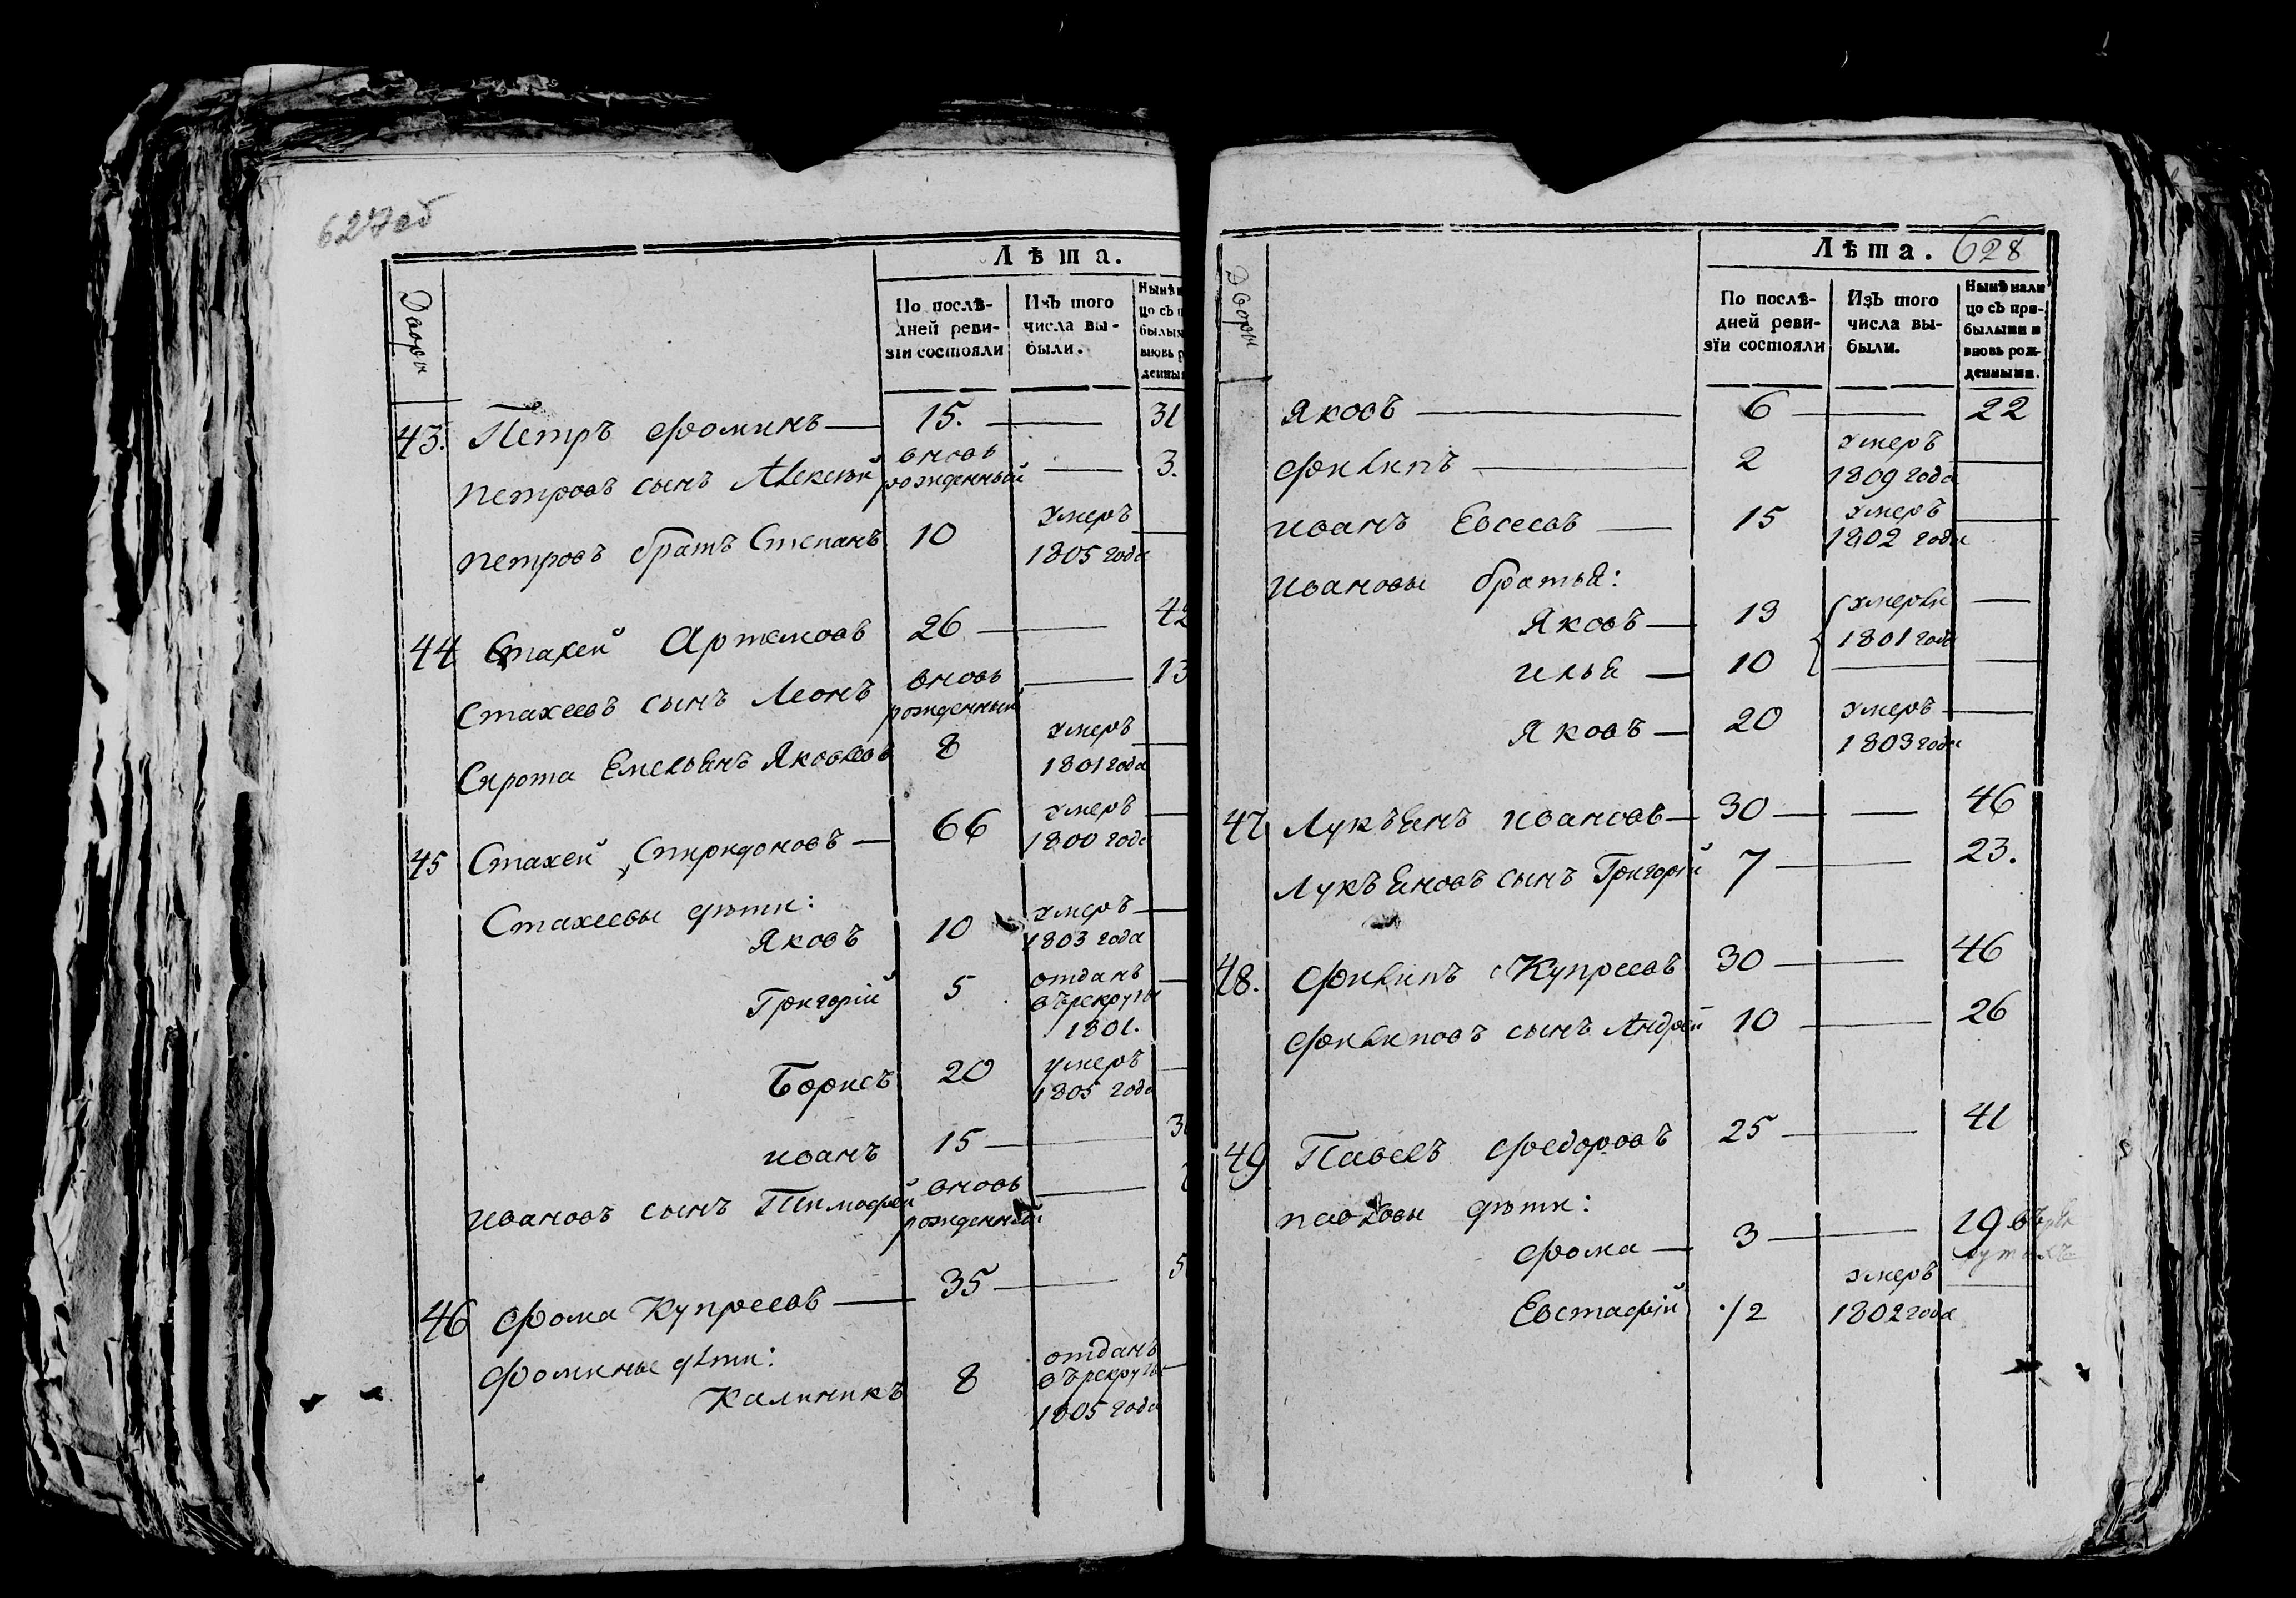 627об
Лѣта.
Дворы
По послѣ-
дней реви-
зїи состояли
Изъ того
числа вы-
были.
Нынѣ
цо съ
былы
вновь
денны
43. Петръ Фоминъ 15. 31
Петровъ сынъ Алексѣй вновь
рожденный 3.
Петровъ братъ Степанъ 10 умеръ
1805 года
44 Стахей Артемовъ 26 42
Стахеевъ сынъ Леонъ вновь
рожденный 13
Сирота Емельянъ Яковлевъ 8 умеръ
1801 года
45 Стахей Спиридоновъ 66 умеръ
1800 года
Стахеевы дѣти:
Яковъ 10 умеръ
1803 года
Григорій 5 отданъ
въ рекруты
1801.
Борисъ 20 умеръ
1805 года
иванъ 15 3
ивановъ сынъ Тимофей вновь
рожденный
46 Фома Купреевъ 35 5
Фомины дѣти:
Калиникъ 8 отданъ
въ рекруты
1805 года
628
Лѣта.
Дворы
По послѣ-
дней реви-
зїи состояли
Изъ того
числа вы-
были.
Нынѣ нали
цо съ при-
былыми и
вновь рож-
денными.
Яковъ 6 22
Филипъ 2 умеръ
1809 года
иванъ Евсеевъ 15 умеръ
1802 года
ивановы братья:
Яковъ 13 умерли
1801 года
илья 10
Яковъ 20 умеръ
1803 года
47 Лукъянъ ивановъ 30 46
Лукъяновъ сынъ Григорій 7 23.
48. Филипъ Купреевъ 30 46
Филиповъ сынъ Андрей 10 26
49 Павелъ Федоровъ 25 41
павловы дѣти:
Фома 3 19 въ рек
рутахъ
Евстафій 1/2 умеръ
1802 года